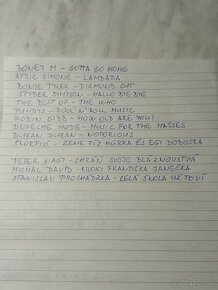 BONEY M - GOTTA GO HOME
AFRIC SIMONE - LAMBADA
BONIE TYLER - DIAMOND CUT
SPYDER SYMPSON - HALLO BYE BYE
THE BEST OF - THE WHO
PUHDYS - ROCK'N'ROLL MUSIC
ROBIN GIBB - HOW OLD ARE YOU?
DEPECHE MODE - MUSIC FOR THE MASSES
DURAN DURAN - NOTORIOUS
SKORPIÓ - ZENE TIZ HÚRRA ÉS EGY DOBOSRA
PETER NAGY - CHRÁŇ SVOJE BLÁZNOVSTVÁ
MICHAL DAVID - KROKI FRANTIŠKA JANEČKA
STANISLAV PROCHÁZKA - CELÁ ŠKOLA UŽ TO VÍ